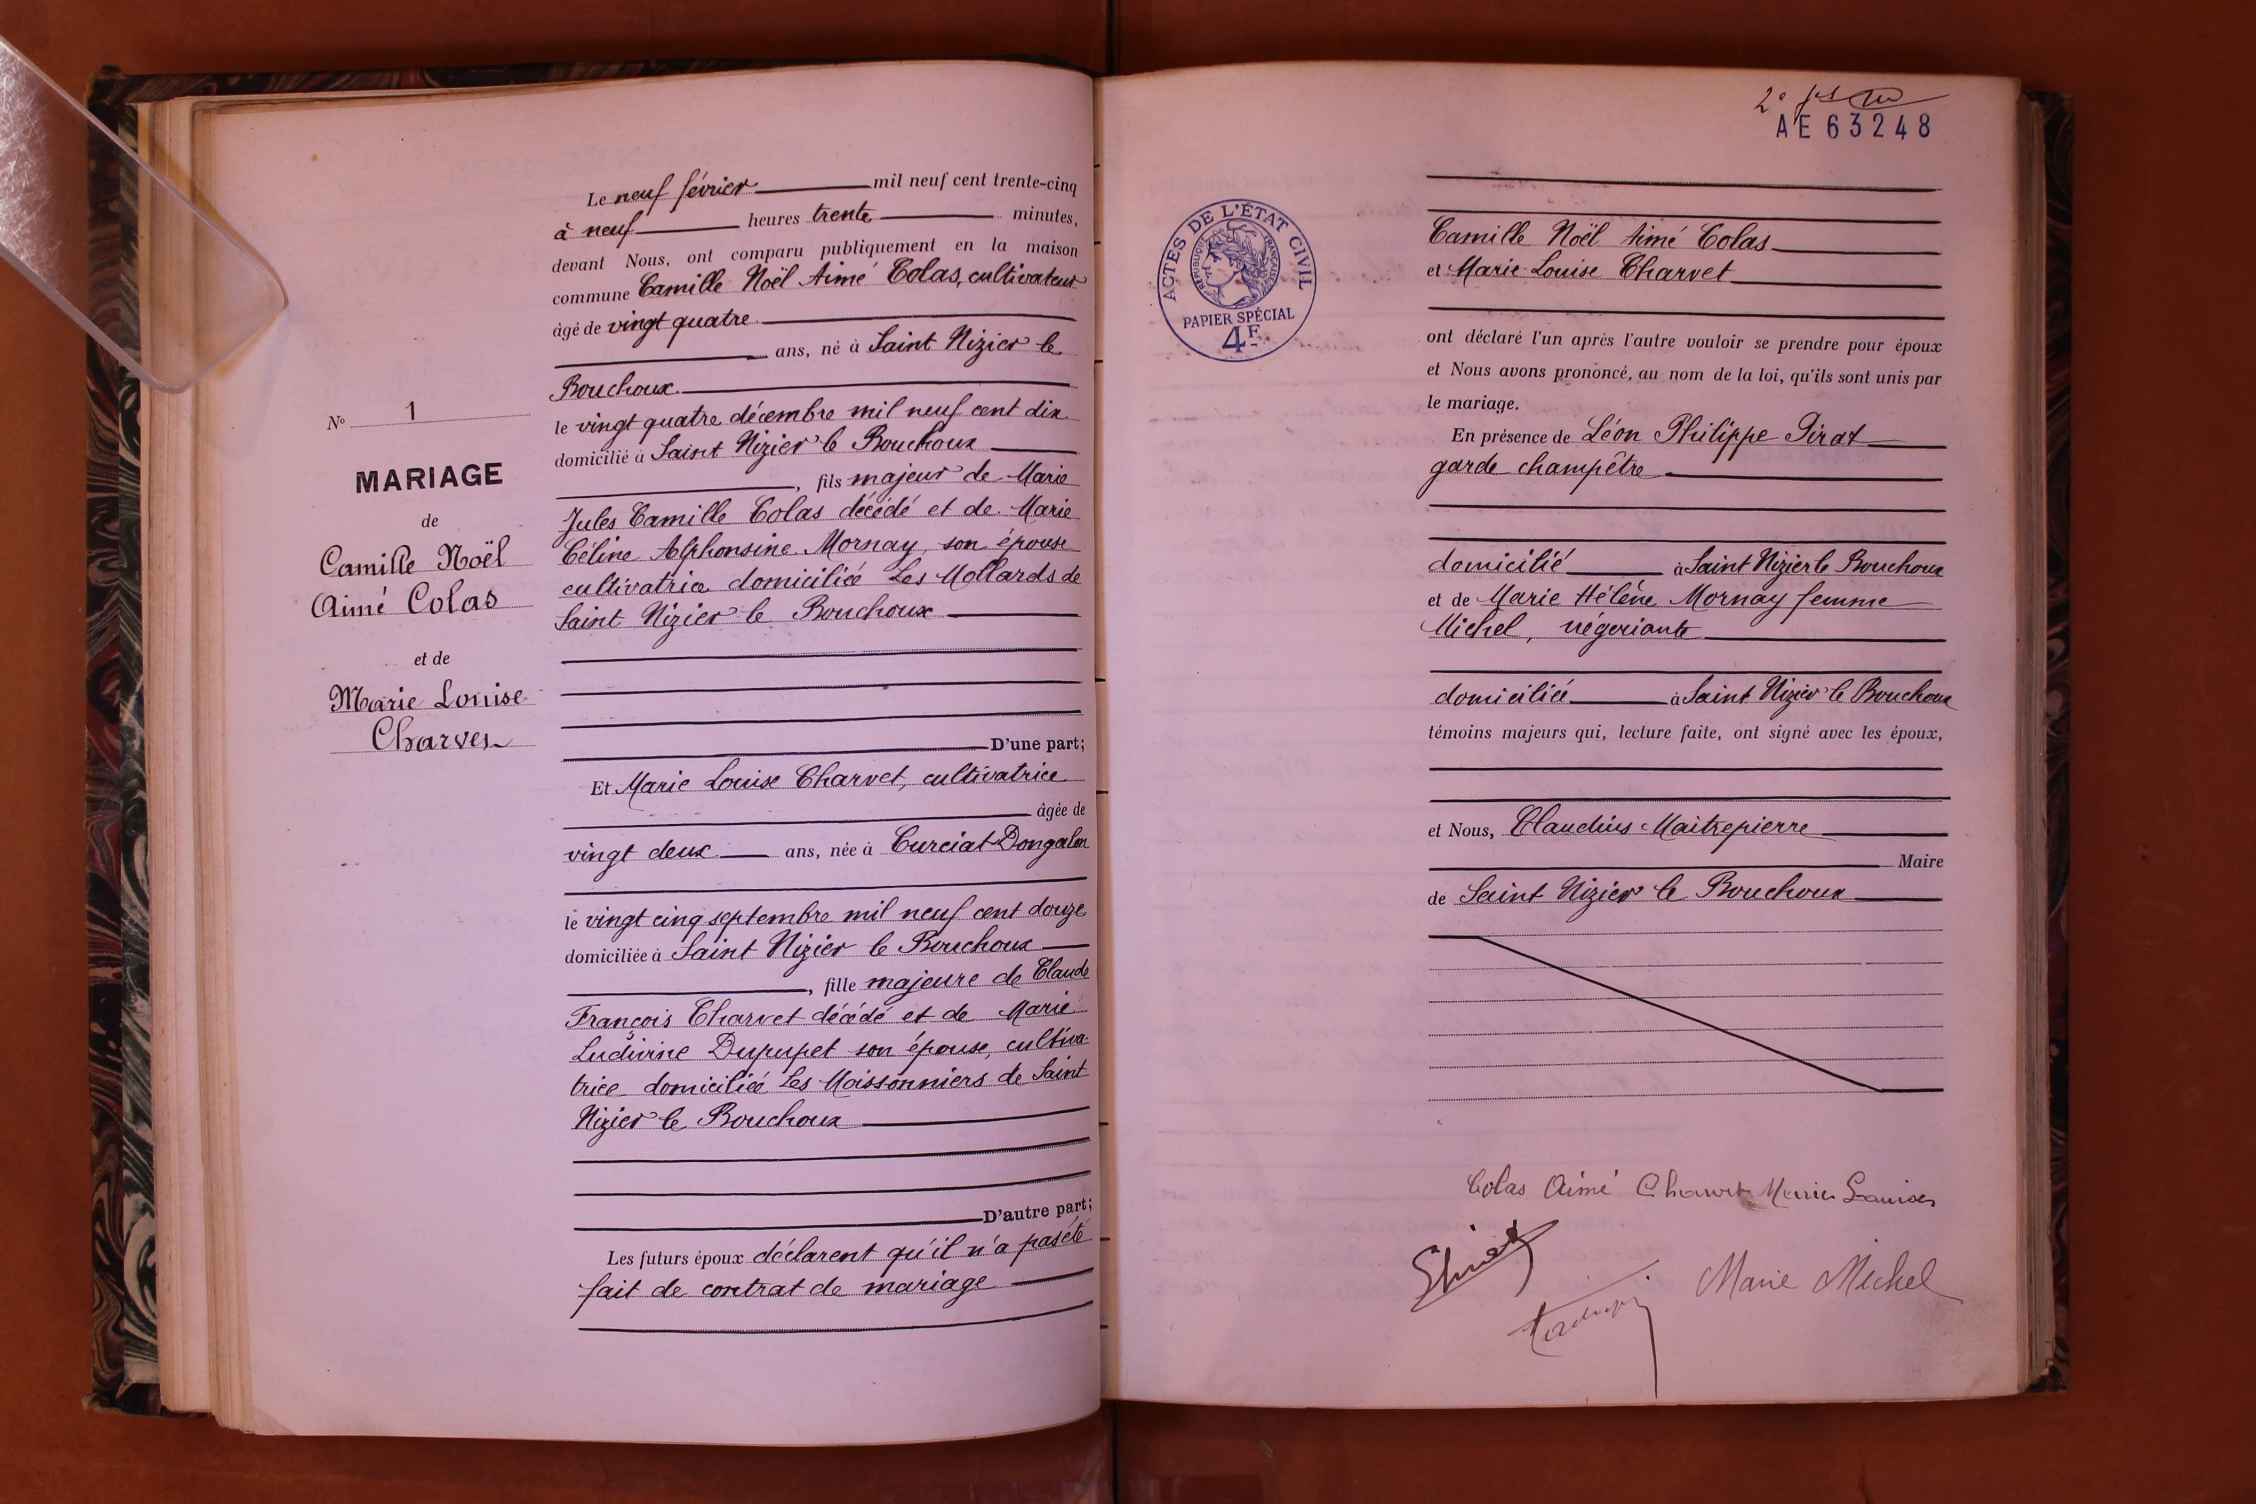 Le neuf février mil neuf cent trente-cinq
à neuf heures trente minutes,
devant Nous, ont comparu publiquement en la maison
commune Camille Noël Aimé Colas, cultivateur
âgé de vingt quatre
ans, né à Saint Nizier le
Bouchoux
le vingt quatre décembre mil neuf cent dix
domicilié à Saint Nizier le Bouchoux
, fils majeur de Marie
Jules Camille Colas décédé et de Marie
Céline Alphonsine Mornay, son épouse
cultivatrice domiciliée Les Mollards de
Saint Nizier le Bouchoux
D'une part;
Et Marie Louise Charvet, cultivatrice
âgée de
vingt deux ans, née à Curciat-Dongalon
le vingt cinq septembre mil neuf cent douze
domiciliée à Saint Nizier le Bouchoux
, fille majeure de Claude
François Charvet décédé et de Marie
Ludivine Dupupet son épouse, cultiva-
trice domiciliée Les Moissonniers de Saint
Nizier le Bouchoux
D'autre part;
Les futurs époux déclarent qu'il n'a pas été
fait de contrat de mariage
No 1
MARIAGE
de
Camille Noël
Aimé Colas
et de
Marie Louise
Charvet
2e
AE 63248
ACTES DE L'ÉTAT CIVIL
RÉPUBLIQUE FRANÇAISE
PAPIER SPÉCIAL
4F
Camille Noël Aimé Colas
et Marie Louise Charvet
ont déclaré l'un après l'autre vouloir se prendre pour époux
et Nous avons prononcé, au nom de la loi, qu'ils sont unis par
le mariage.
En présence de Léon Philippe Pirat
garde champêtre
domicilié à Saint Nizier le Bouchoux
et de Marie Hélène Mornay femme
Michel, négociante
domiciliée à Saint Nizier le Bouchoux
témoins majeurs qui, lecture faite, ont signé avec les époux,
et Nous, Claudius Maitrepierre
Maire
de Saint Nizier le Bouchoux
Colas Aimé Charvet Marie Louise
Marie Michel